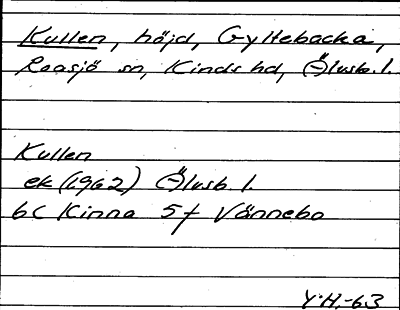 Kullen, höjd, Gyltebacka,
Roasjö sn, Kinds hd, Älvsb. l.
Kullen
ek (1962) Älvsb l.
6c Kinna 5f Vännebo
Y.H.-63